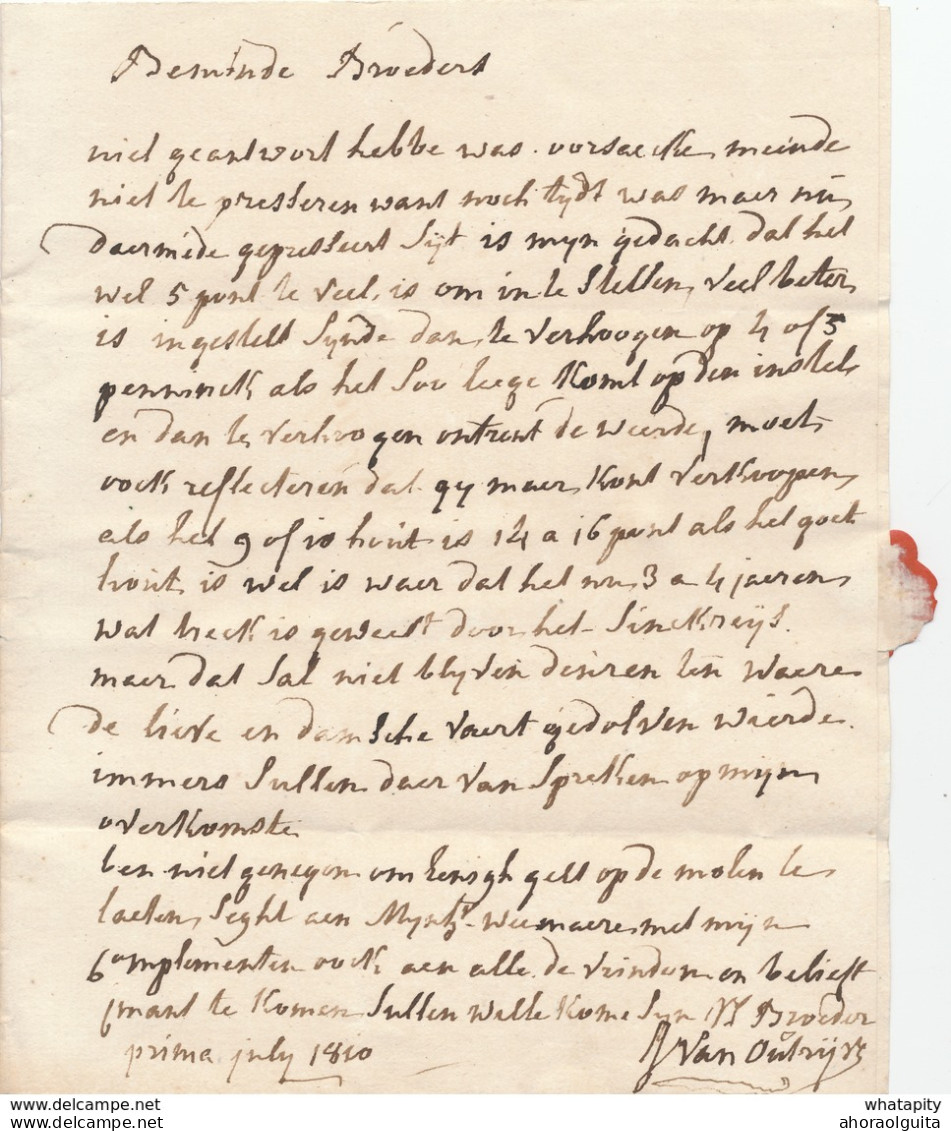 Beminde Broeders
niet geantwort hebbe was oorsaecke meinde
niet te presseren want noch tydt was maer nu
daermede gepresseert syt is myn gedacht dat het
wel 5 pont te veel is om in te stellen, veel beter
is ingestelt synde dan te verhoogen op 4 of 5
penninck als het soo leege komt op den instel
en dan te verhoogen ontrent de weerde, moet
oock reflecteren dat gy maer kont verkoopen
als het 9 of 10 hout is 14 a 16 pont als het goet
hout is wel is waer dat het nu 3 a 4 jaeren
wat is geweest door het
maer dat sal niet blyven deuren ten waere
de lieve en damsche vaert gedolven wierde.
immers sullen daer van spreken op myn
overkomste
ben niet genegen om eenigh gelt op de molen te
laeten, seght aen weemaere met myn
complementen oock aen alle de vrinden en belieft
imant te komen sullen wellekome syn Broeder
prima july 1810 Van Outryve
whatapity
ahoraolguita